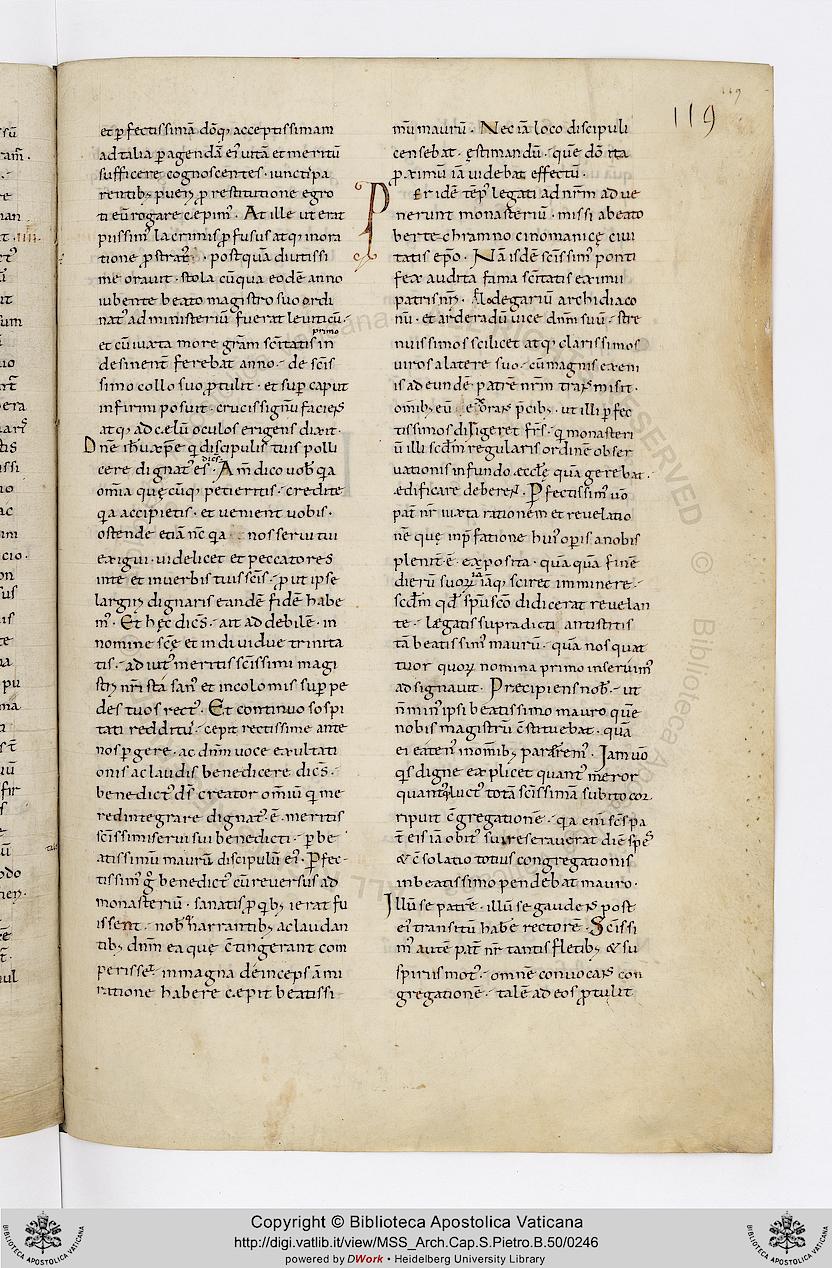 119
119
et ꝑfectissimā dōq; acceptissimam
ad talia ꝑagendā ei' uitā et meritū
sufficere cognoscentes · iuncti pa
rentib; pueri ꝓ restitutione egro
ti eū rogare cepim'. At ille ut erat
piissim' lacrimis ꝓfusus atq; in ora
tione ꝓstrat' · postquā diutissi
me orauit · stola cū qua eodē anno
iubente beato magistro suo ordi
nat' ad ministeriū fuerat leuiticū ·
et cū iuxta more grām sc̄itatis in primo
desinent ferebat anno · de sc̄is
simo collo suo ꝓtulit · et suꝑ caput
infirmi posuit · crucis signū faciens
atq; ad celū oculos erigens dixit ·
Dn̄e ih̄u xp̄e q discipulis tuis polli
cere dignat' es dices · Am̄ dico uob' q̄a
om̄ia quęcūq; petieritis · credite
q̄a accipietis · et uenient uobis ·
ostende etiā nc̄ q̄a nos serui tui
exigui · uidelicet et peccatores
in te et in uerbis tuis sc̄is · ꝓut ipse
largiri dignaris eandē fidē habe
m' · Et hęc dicēs · ait ad debilē · in
nomine sc̄ę et indiuidue trinita
tis · adiut' meritis sc̄issimi magi
stri nr̄i sta san' et incolomis suꝑ pe
des tuos rect' · Et continuo sospi
tati redditur · cepit rectissime ante
nos ꝑgere · ac dn̄m uoce exultati
onis ac laudis benedicere dicēs ·
benedict' ds̄ creator om̄iū q me
redintegrare dignat' ē · meritis
sc̄issimi serui sui benedicti · ꝑ be
atissimū maurū discipulū ei' · Pfec
tissim' g̊ benedict' cū reuersus ad
monasteriū · sanatis ꝓ qb; ierat fu
issent · nob' narrantib; ac laudan
tib; dn̄m ea que c̄tingerant com
perisset in magna deinceps āmi
ratione habere cepit beatissi
mū maurū · Nec iā loco discipuli
censebat · ęstimandū · quē dō ita
ꝓximū iā uidebat effectū ·
Per idē temp' legati ad nr̄m adue
nerunt monasteriū · missi a beato
bertechramno cinomanicę ciui
tatis ep̄o · Nā isdē sc̄issim' ponti
fex audita fama sc̄itatis eximii
patris nr̄i · flodegariū archidiaco
nū · et arderadū uice dn̄m suū · stre
nuissimos scilicet atq; clarissimos
uiros a latere suo · cū magnis exeni
is ad eundē patrē nr̄m transmisit ·
om̄ib; eū exorans p̄cib; · ut illi ꝑfec
tissimos diligeret fr̄s · q monasteri
ū illi scd̄m regularis ordinē obser
uationis in fundo ęccl̄ę quā gerebat ·
edificare deberent · Pfectissim' uo
pat̄ nr̄ iuxta rationem et reuelatio
nē que in p̄fatione hui' opis a nobis
plenit' ē exposita · quā quā finē
dierū suoꝝ iā iāq; sciret imminere ·
scd̄m qd̄ sp̄u sc̄o didicerat reuelan
te · legatis supradicti antistitis
tā beatissim' maurū · quā nos quat
tuor quoꝝ nomina primo inseruim'
adsignauit · Precipiens nob' · ut
n̄ min' ipsi beatissimo mauro quē
nobis magistrū c̄stituebat · quā
ei eaten' in om̄ib; pararem' · Iam uō
q̄s digne explicet quant' meror
quantusq; luct' totā sc̄issimā subito cor
ripuit c̄gregationē · q̄a eni sc̄s pa
t̄ eis iā obit' sui reserauerat diē spēs
& c̄solatio totius congregationis
in beatissimo pendebat mauro ·
Illū se patrē · illū se gaudens post
ei' transitū habe rectorē · Scissi
m' autē pat̄ nr̄ tantis fletib; & su
spiriis mot' · omnē conuocans con
gregationē · talē ad eos ꝓtulit
Copyright © Biblioteca Apostolica Vaticana
http://digi.vatlib.it/view/MSS_Arch.Cap.S.Pietro.B.50/0246
powered by DWork • Heidelberg University Library